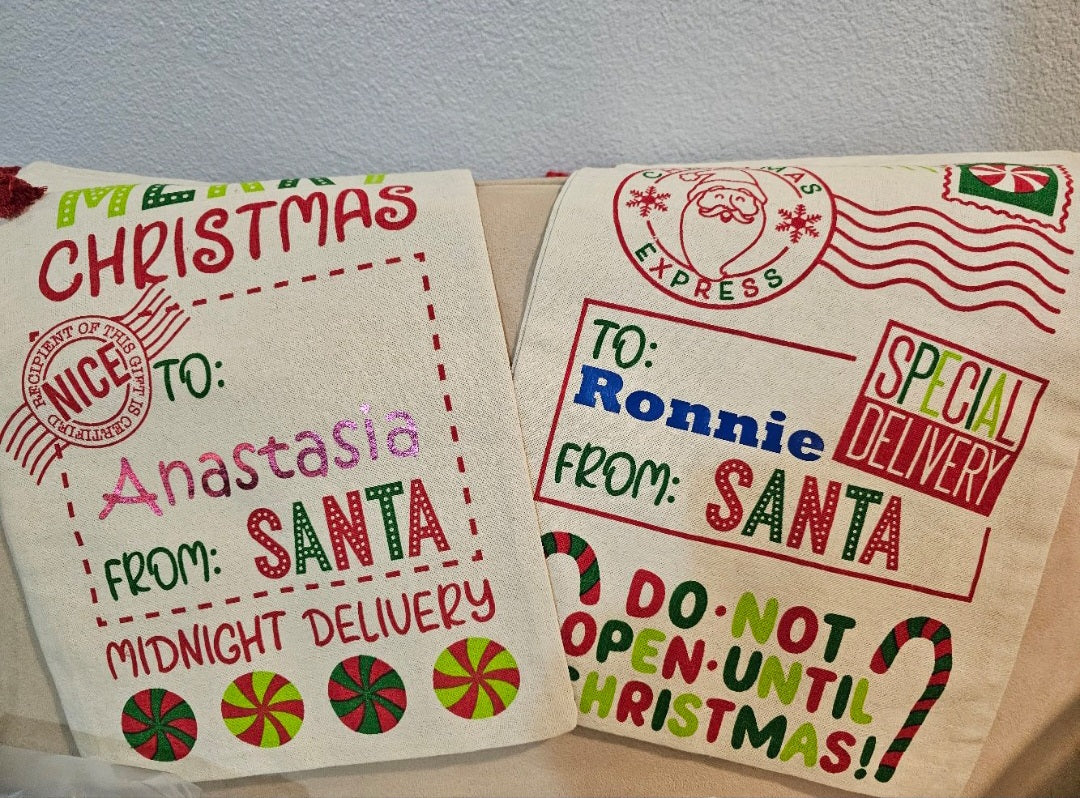 MERRY
CHRISTMAS
RECIPIENT OF THIS GIFT IS CERTIFIED
NICE
TO:
Anastasia
FROM: SANTA
MIDNIGHT DELIVERY
CHRISTMAS
EXPRESS
TO:
Ronnie
SPECIAL
DELIVERY
FROM: SANTA
DO·NOT
OPEN·UNTIL
CHRISTMAS!!